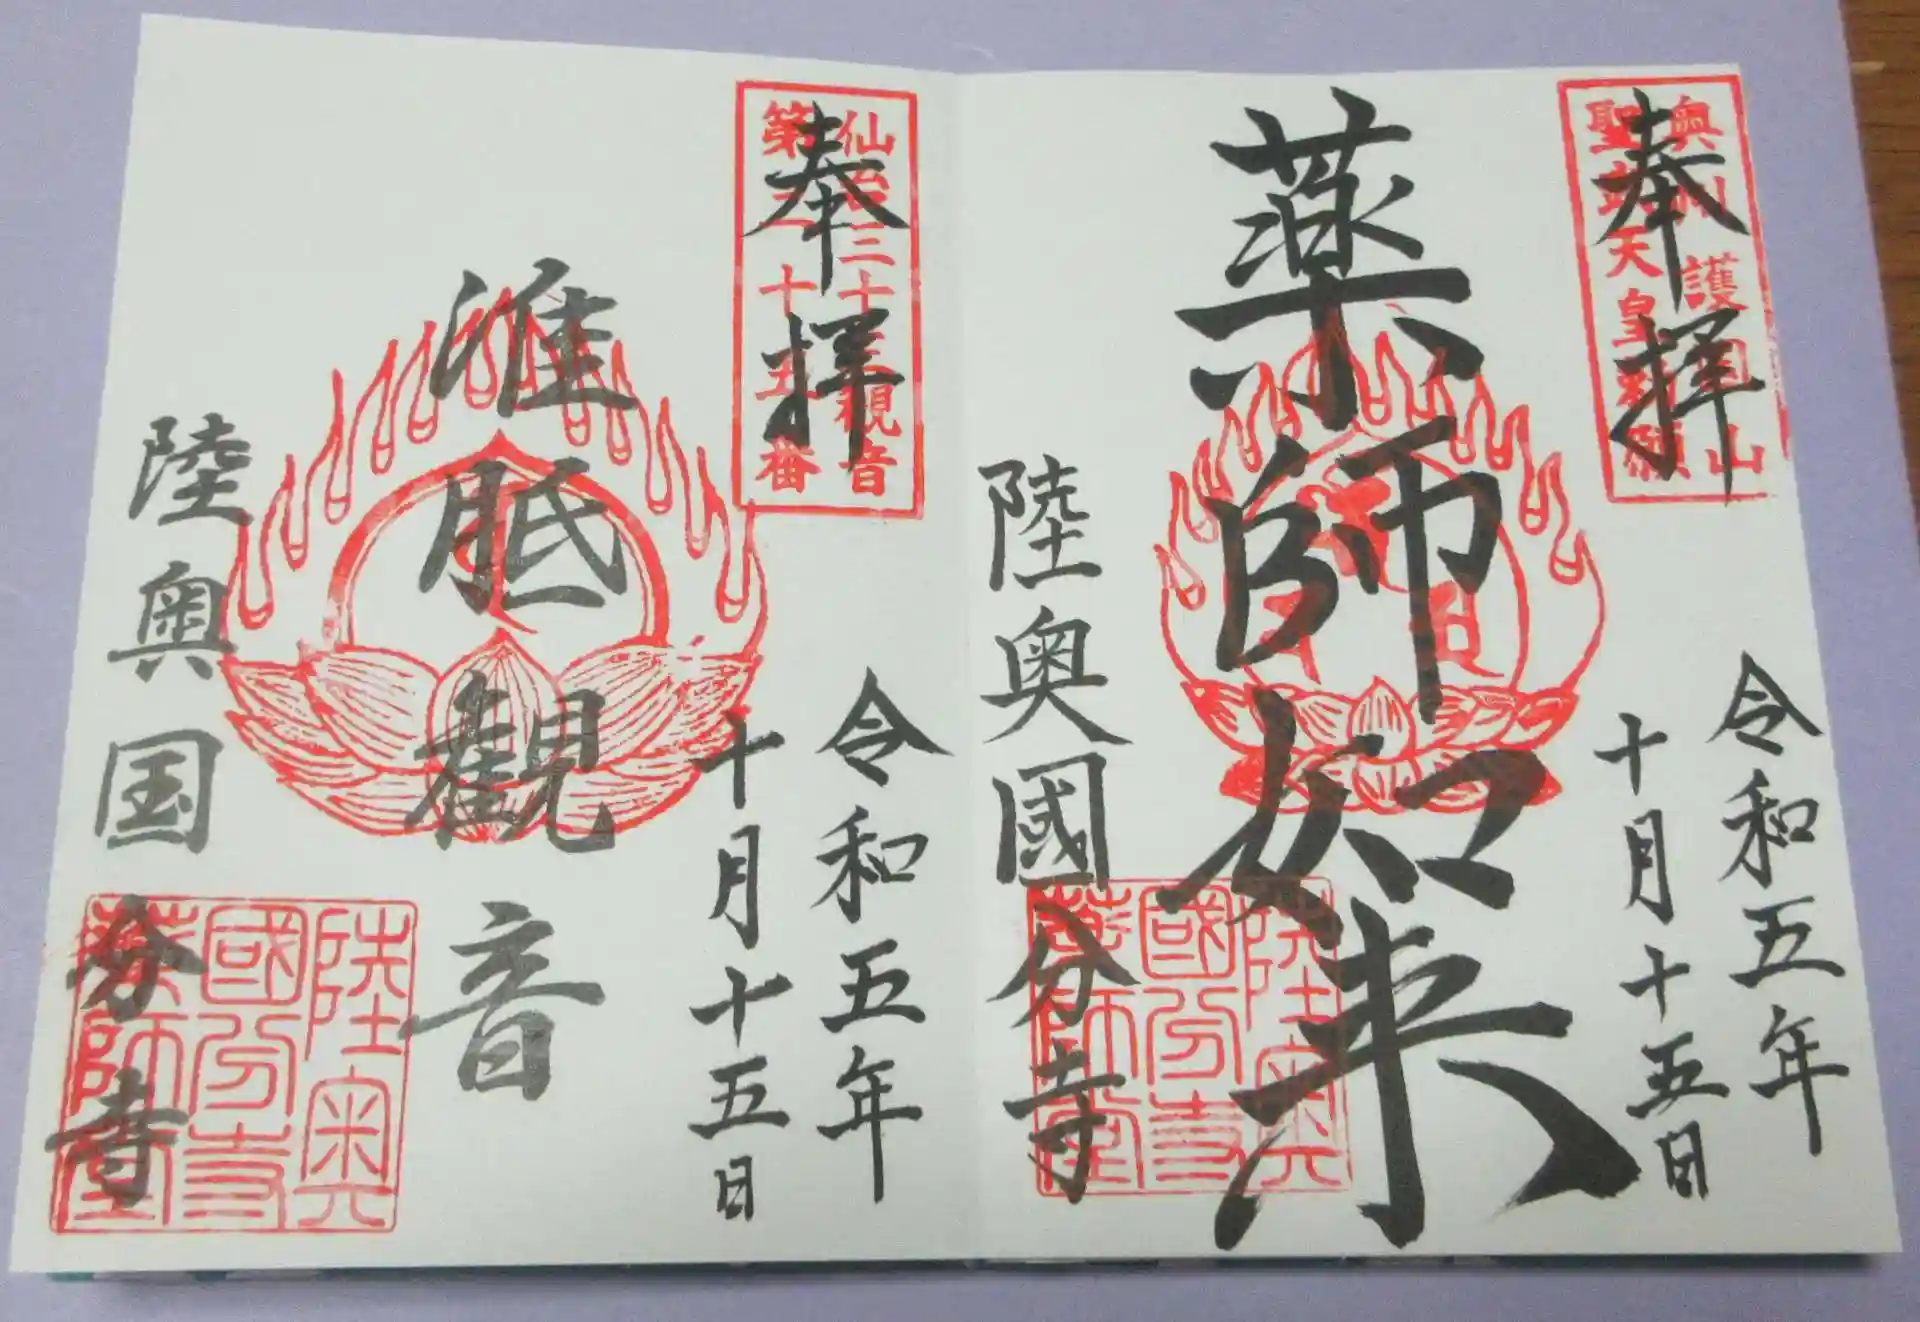 奉拝
奥州護国山
聖武天皇勅願
令和五年
十月十五日
薬師如来
陸奥國分寺
陸奥
國分寺
薬師堂
奉拝
仙台三十三観音
第二十五番
令和五年
十月十五日
准胝観音
陸奥国分寺
陸奥
國分寺
薬師堂